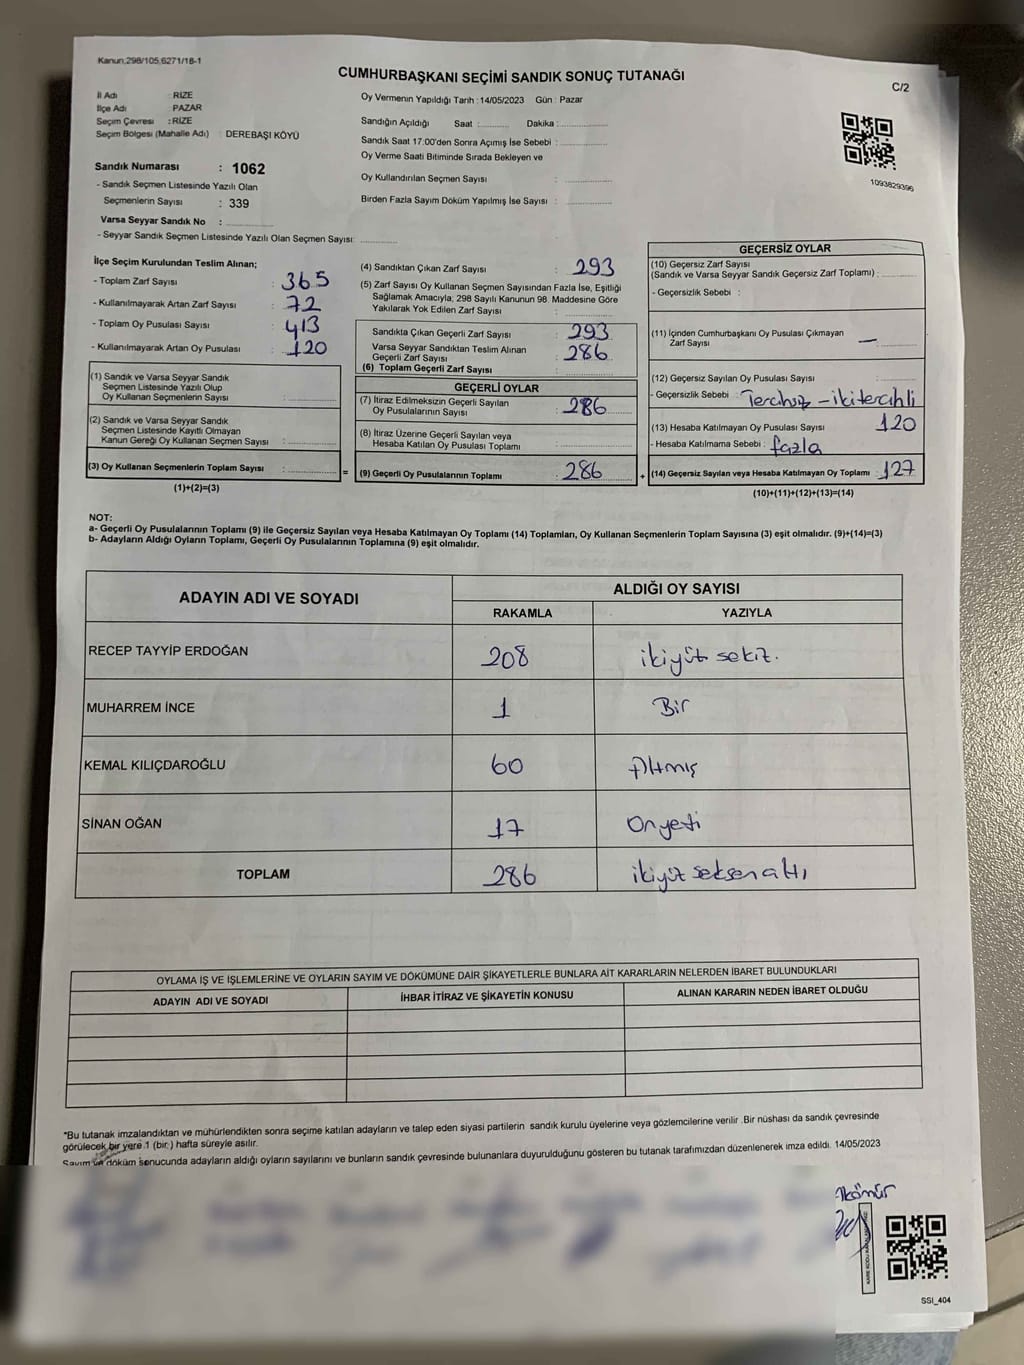 Kanun;298/105,6271/18-1
CUMHURBAŞKANI SEÇİMİ SANDIK SONUÇ TUTANAĞI
C/2
İl Adı : RİZE
İlçe Adı : PAZAR
Seçim Çevresi : RİZE
Seçim Bölgesi (Mahalle Adı) : DEREBAŞI KÖYÜ
Sandık Numarası : 1062
- Sandık Seçmen Listesinde Yazılı Olan
Seçmenlerin Sayısı : 339
Varsa Seyyar Sandık No :
- Seyyar Sandık Seçmen Listesinde Yazılı Olan Seçmen Sayısı:
Oy Vermenin Yapıldığı Tarih : 14/05/2023 Gün : Pazar
Sandığın Açıldığı Saat : Dakika :
Sandık Saat 17:00'den Sonra Açımış İse Sebebi :
Oy Verme Saati Bitiminde Sırada Bekleyen ve
Oy Kullandırılan Seçmen Sayısı :
Birden Fazla Sayım Döküm Yapılmış İse Sayısı :
1093829396
İlçe Seçim Kurulundan Teslim Alınan;
- Toplam Zarf Sayısı : 365
- Kullanılmayarak Artan Zarf Sayısı : 72
- Toplam Oy Pusulası Sayısı : 413
- Kullanılmayarak Artan Oy Pusulası : 120
(1) Sandık ve Varsa Seyyar Sandık
Seçmen Listesinde Yazılı Olup
Oy Kullanan Seçmenlerin Sayısı :
(2) Sandık ve Varsa Seyyar Sandık
Seçmen Listesinde Kayıtlı Olmayan
Kanun Gereği Oy Kullanan Seçmen Sayısı :
(3) Oy Kullanan Seçmenlerin Toplam Sayısı : =
(1)+(2)=(3)
(4) Sandıktan Çıkan Zarf Sayısı : 293
(5) Zarf Sayısı Oy Kullanan Seçmen Sayısından Fazla İse, Eşitliği
Sağlamak Amacıyla; 298 Sayılı Kanunun 98. Maddesine Göre
Yakılarak Yok Edilen Zarf Sayısı :
Sandıkta Çıkan Geçerli Zarf Sayısı : 293
Varsa Seyyar Sandıktan Teslim Alınan
Geçerli Zarf Sayısı : 286
(6) Toplam Geçerli Zarf Sayısı :
GEÇERLİ OYLAR
(7) İtiraz Edilmeksizin Geçerli Sayılan
Oy Pusulalarının Sayısı : 286
(8) İtiraz Üzerine Geçerli Sayılan veya
Hesaba Katılan Oy Pusulası Toplamı :
(9) Geçerli Oy Pusulalarının Toplamı : 286 +
GEÇERSİZ OYLAR
(10) Geçersiz Zarf Sayısı
(Sandık ve Varsa Seyyar Sandık Geçersiz Zarf Toplamı) :
- Geçersizlik Sebebi :
(11) İçinden Cumhurbaşkanı Oy Pusulası Çıkmayan
Zarf Sayısı : —
(12) Geçersiz Sayılan Oy Pusulası Sayısı :
- Geçersizlik Sebebi : Tercihsiz - iki tercihli
(13) Hesaba Katılmayan Oy Pusulası Sayısı : 120
- Hesaba Katılmama Sebebi : fazla
(14) Geçersiz Sayılan veya Hesaba Katılmayan Oy Toplamı : 127
(10)+(11)+(12)+(13)=(14)
NOT:
a- Geçerli Oy Pusulalarının Toplamı (9) ile Geçersiz Sayılan veya Hesaba Katılmayan Oy Toplamı (14) Toplamları, Oy Kullanan Seçmenlerin Toplam Sayısına (3) eşit olmalıdır. (9)+(14)=(3)
b- Adayların Aldığı Oyların Toplamı, Geçerli Oy Pusulalarının Toplamına (9) eşit olmalıdır.
ADAYIN ADI VE SOYADI
ALDIĞI OY SAYISI
RAKAMLA YAZIYLA
RECEP TAYYİP ERDOĞAN 208 ikiyüz sekiz.
MUHARREM İNCE 1 Bir
KEMAL KILIÇDAROĞLU 60 Altmış
SİNAN OĞAN 17 Onyedi
TOPLAM 286 ikiyüz seksen altı
OYLAMA İŞ VE İŞLEMLERİNE VE OYLARIN SAYIM VE DÖKÜMÜNE DAİR ŞİKAYETLERLE BUNLARA AİT KARARLARIN NELERDEN İBARET BULUNDUKLARI
ADAYIN ADI VE SOYADI İHBAR İTİRAZ VE ŞİKAYETİN KONUSU ALINAN KARARIN NEDEN İBARET OLDUĞU
*Bu tutanak imzalandıktan ve mühürlendikten sonra seçime katılan adayların ve talep eden siyasi partilerin sandık kurulu üyelerine veya gözlemcilerine verilir .Bir nüshası da sandık çevresinde
görülecek bir yere 1 (bir) hafta süreyle asılır.
Sayım ve döküm sonucunda adayların aldığı oyların sayılarını ve bunların sandık çevresinde bulunanlara duyurulduğunu gösteren bu tutanak tarafımızdan düzenlenerek imza edildi. 14/05/2023
SSI_404